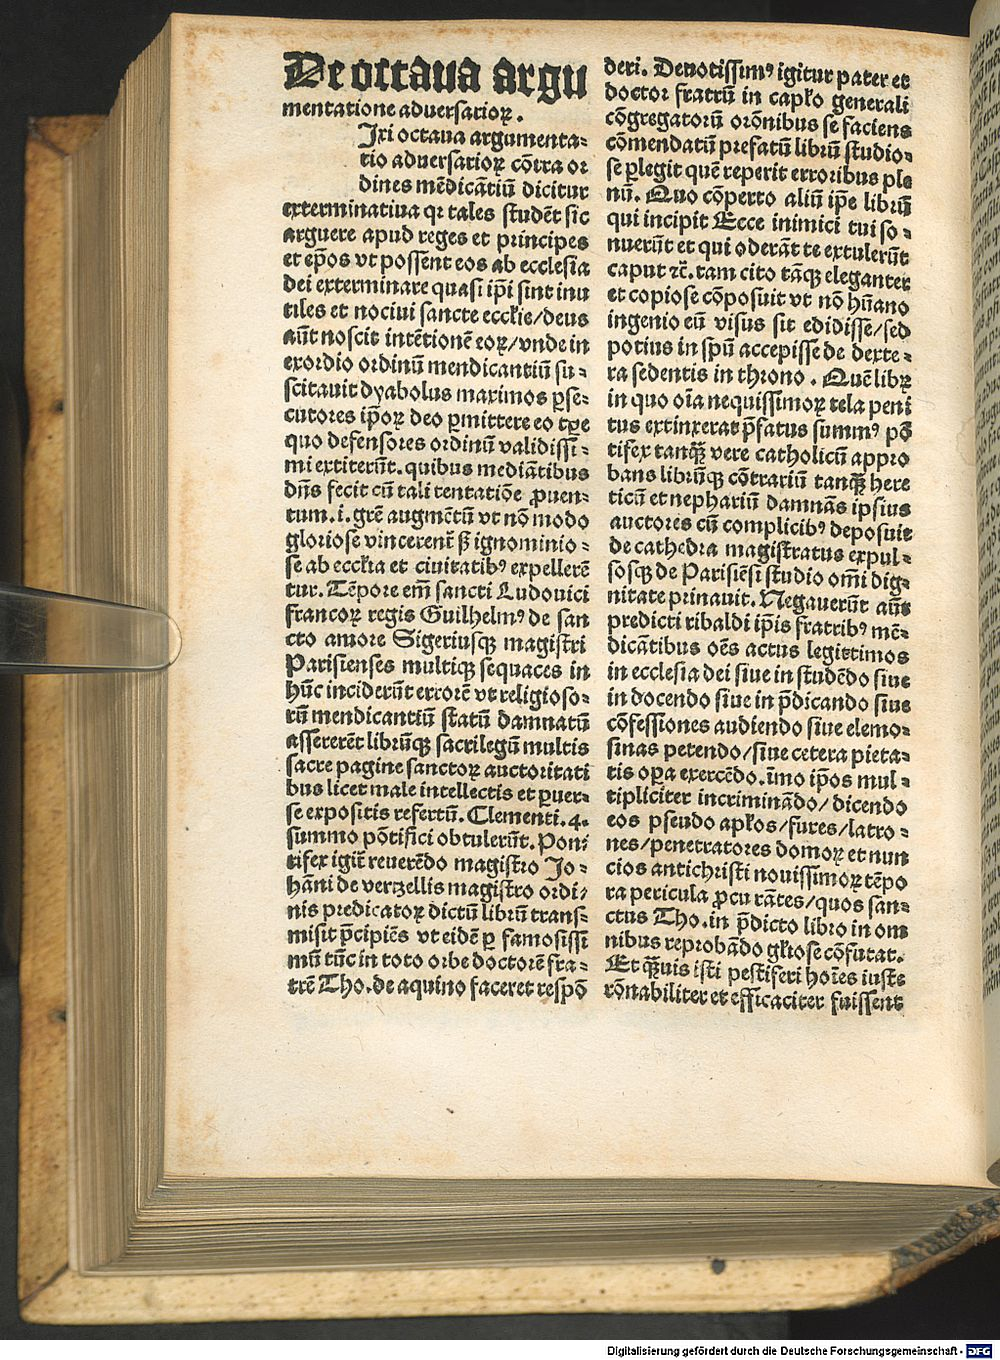 De octaua argu
mentatione aduersarioꝝ.
Ixi octaua argumenta⸗
tio aduersarioꝝ cōtra or
dines mēdicātiū dicitur
exterminatiua qꝛ tales studēt sic
arguere apud reges et principes
et ep̄os vt possent eos ab ecclesia
dei exterminare quasi ip̄i sint inu
tiles et nociui sancte eccłie/deus
aūt noscit intētionē eoꝝ/vnde in
exordio ordinū mendicantiū su⸗
scitauit dyabolus maximos ꝑse⸗
cutores ip̄oꝝ deo ꝑmittere eo tꝑe
quo defensores ordinū validissi⸗
mi extiterūt. quibus mediātibus
dn̄s fecit cū tali tentatiōe ꝓuen⸗
tum.i.grē augmētū vt nō modo
gloriose vincerent̄ ß ignominio⸗
se ab eccłia et ciuitatibꝰ expellerē
tur. Tēpore em̄ sancti Ludouici
francoꝝ regis Guilhelmꝰ de san
cto amore Sigeriusqꝫ magistri
Parisienses multiqꝫ sequaces in
hūc inciderūt errorē vt religioso⸗
rū mendicantiū statū damnatū
assererēt librūqꝫ sacrilegū multis
sacre pagine sanctoꝝ auctoritati
bus licet male intellectis et ꝑuer⸗
se expositis refertū. Clementi.4.
summo pōtifici obtulerūt. Ponti
tifex igit̄ reuerēdo magistro Jo⸗
hāni de verzellis magistro ordi⸗
nis predicatoꝝ dictū librū trans⸗
misit p̄cipiēs vt eidē ꝑ famosissi
mū tūc in toto orbe doctorē fra⸗
trē Tho.de aquino faceret respō
deri. Deuotissimꝰ igitur pater et
doctor fratrū in capło generali
cōgregatorū orōnibus se faciens
cōmendatū prefatū librū studio⸗
se ꝑlegit quē reperit erroribus ple
nū. Quo cōperto aliū ip̄e librū
qui incipit Ecce inimici tui so⸗
nuerūt et qui oderāt te extulerūt
caput ꝛc̄. tam cito tāqꝫ eleganter
et copiose cōposuit vt nō hūano
ingenio eū visus sit edidisse/sed
potius in sp̄u accepisse de dexte⸗
ra sedentis in throno. Quē librꝝ
in quo oīa nequissimoꝝ tela peni
tus extinxerat p̄fatus summꝰ pō
tifex tanqꝫ̄ vere catholicū appro
bans librūqꝫ cōtrariū tanqꝫ̄ here
ticū et nephariū damnās ipsius
auctores cū complicibꝰ deposuit
de cathedra magistratus expul⸗
sosqꝫ de Parisiēsi studio om̄i dig⸗
nitate priuauit. Negauerūt aūt
predicti ribaldi ip̄is fratribꝰ mē⸗
dicātibus oēs actus legittimos
in ecclesia dei siue in studēdo siue
in docendo siue in p̄dicando siue
cōfessiones audiendo siue elemo⸗
sinas petendo/siue cetera pieta⸗
tis oꝑa exercēdo.īmo ip̄os mul⸗
tipliciter incriminādo/dicendo
eos pseudo apłos/fures/latro⸗
nes/penetratores domoꝝ et nun
cios antichristi nouissimoꝝ tēpo
ra pericula ꝓcurātes/quos san⸗
ctus Tho.in p̄dicto libro in om
nibus reprobādo głose cōfutat.
Et qꝫ̄uis isti pestiferi hoīes iuste
rōnabiliter et efficaciter fuissent
Digitalisierung gefördert durch die Deutsche Forschungsgemeinschaft - DFG